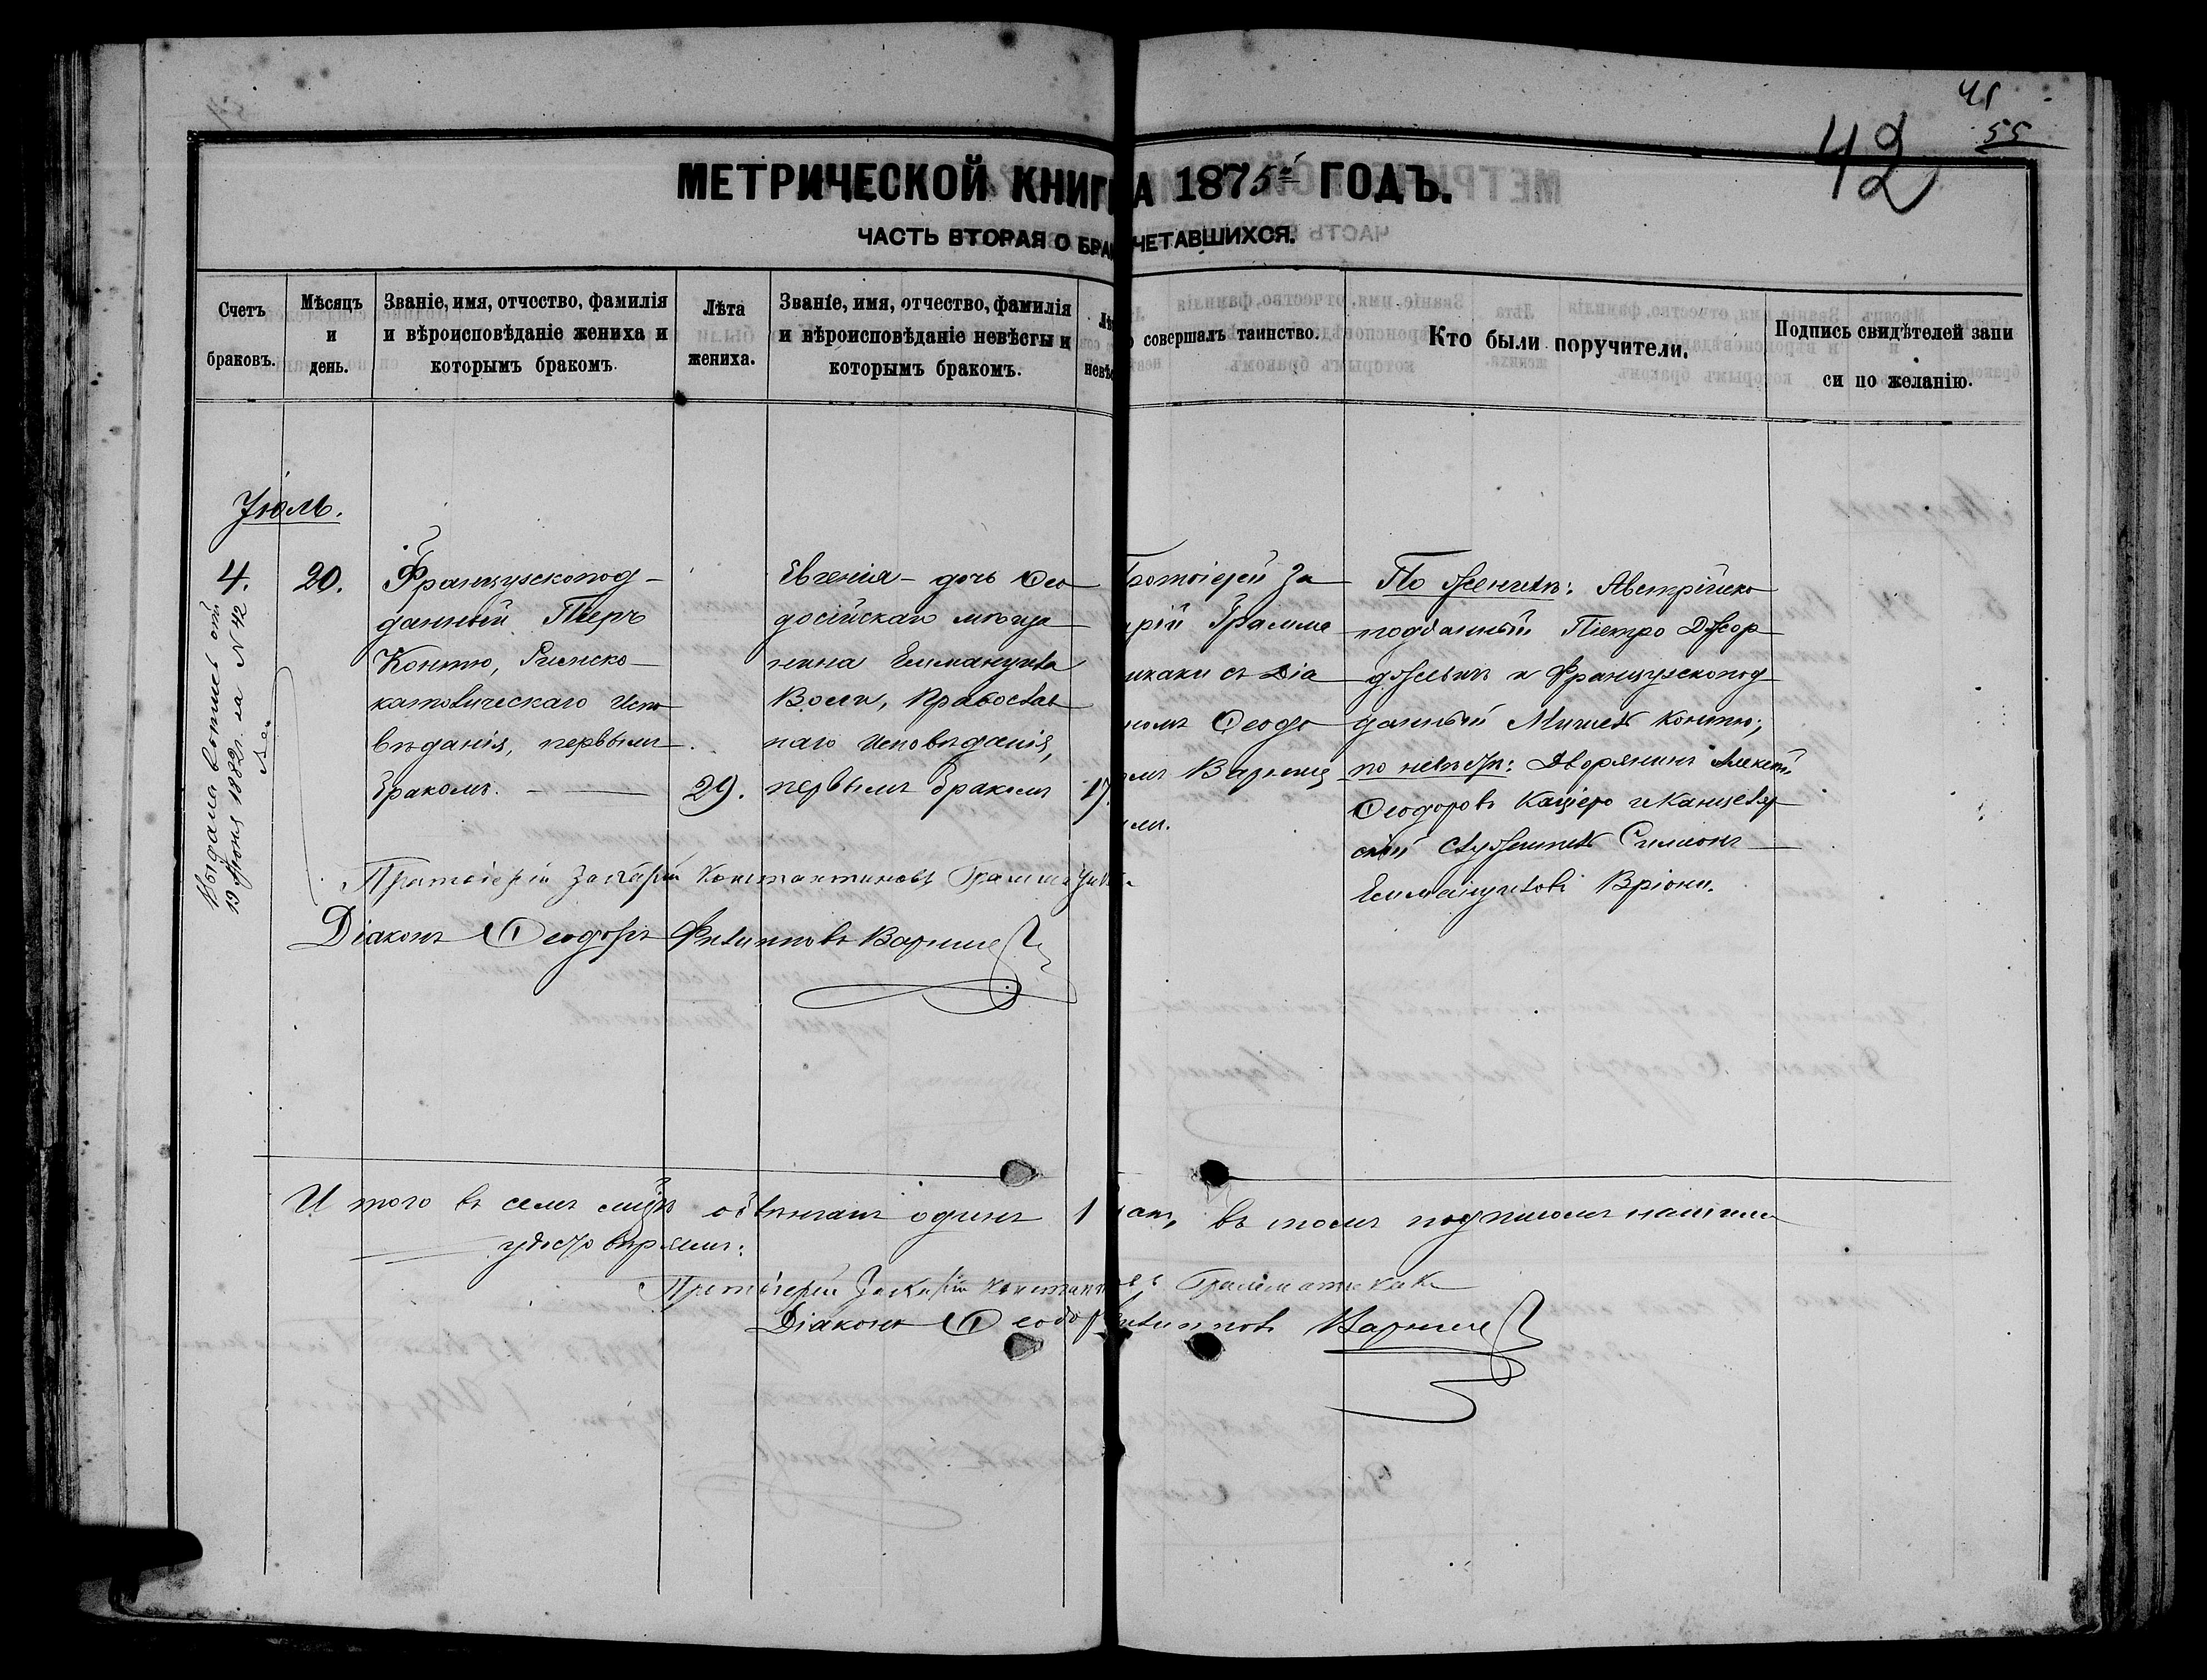 41
55
42
МЕТРИЧЕСКОЙ КНИГ
А 1875й ГОДЪ.
ЧАСТЬ ВТОРАЯ О БРА
ЧЕТАВШИХСЯ.
Счетъ браковъ.
Мѣсяцъ и день.
Званіе, имя, отчество, фамилія
и вѣроисповѣданіе жениха и
которымъ бракомъ.
Лѣта
жениха.
Званіе, имя, отчество, фамилія
и вѣроисповѣданіе невѣсты и
которымъ бракомъ.
совершалъ таинство.
Кто были поручители.
Подпись свидѣтелей запи
си по желанію.
Іюль.
4.
20.
Французскопод-
данный Пьеръ
Контю, Римско-
католическаго испо
вѣданія, первымъ
бракомъ.
29.
Евгенія - дочь Ѳео
досійскаго мѣща
нина Еммануила
Воли, Православ
наго исповѣданія,
первымъ бракомъ
17.
ротоіерей За
рій Грамма
икаки съ Діа
номъ Ѳеодо
омъ Варнице
ли.
По женихѣ: Австрійско
подданный Піетро Джор
джевичъ и Французскопод
данный Мишель Контю;
по невѣстѣ: Дворянинъ Алексѣй
Ѳеодоровъ Каціеро и Канцеляр
скій служитель Симеонъ
Еммануиловъ Вріони.
Выдана выпись отъ
19 Іюня 1882 г. за N 42
Протоіерей Захарій Константиновъ Грамматикаки
Діаконъ Ѳеодоръ Филипповъ Варнице
И того въ семъ мцѣ обвѣнчанъ одинъ 1
въ томъ подписомъ нашимъ
удостовѣряемъ:
Протоіерей Захарій Константиновъ Грамматикаки
Діаконъ Ѳеодоръ Филипповъ Варнице